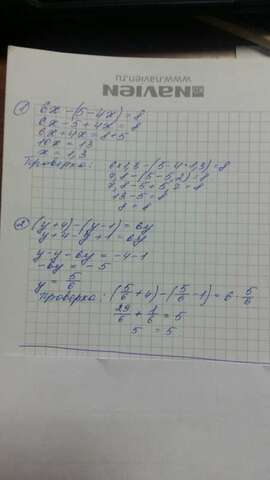 NAVIEN
www.navien.ru
1) 6x-(5-4x)=8
6x-5+4x=8
6x+4x=8+5
10x=13
x=1,3
Проверка: 6·1,3-(5-4·1,3)=8
7,8-(5-5,2)=8
7,8-5+5,2=8
13-5=8
8=8
2) (y+4)-(y-1)=6y
y+4-y+1=6y
y-y-6y=-4-1
-6y=-5
y=5/6
Проверка: (5/6+4)-(5/6-1)=6·5/6
29/6+1/6=5
5=5